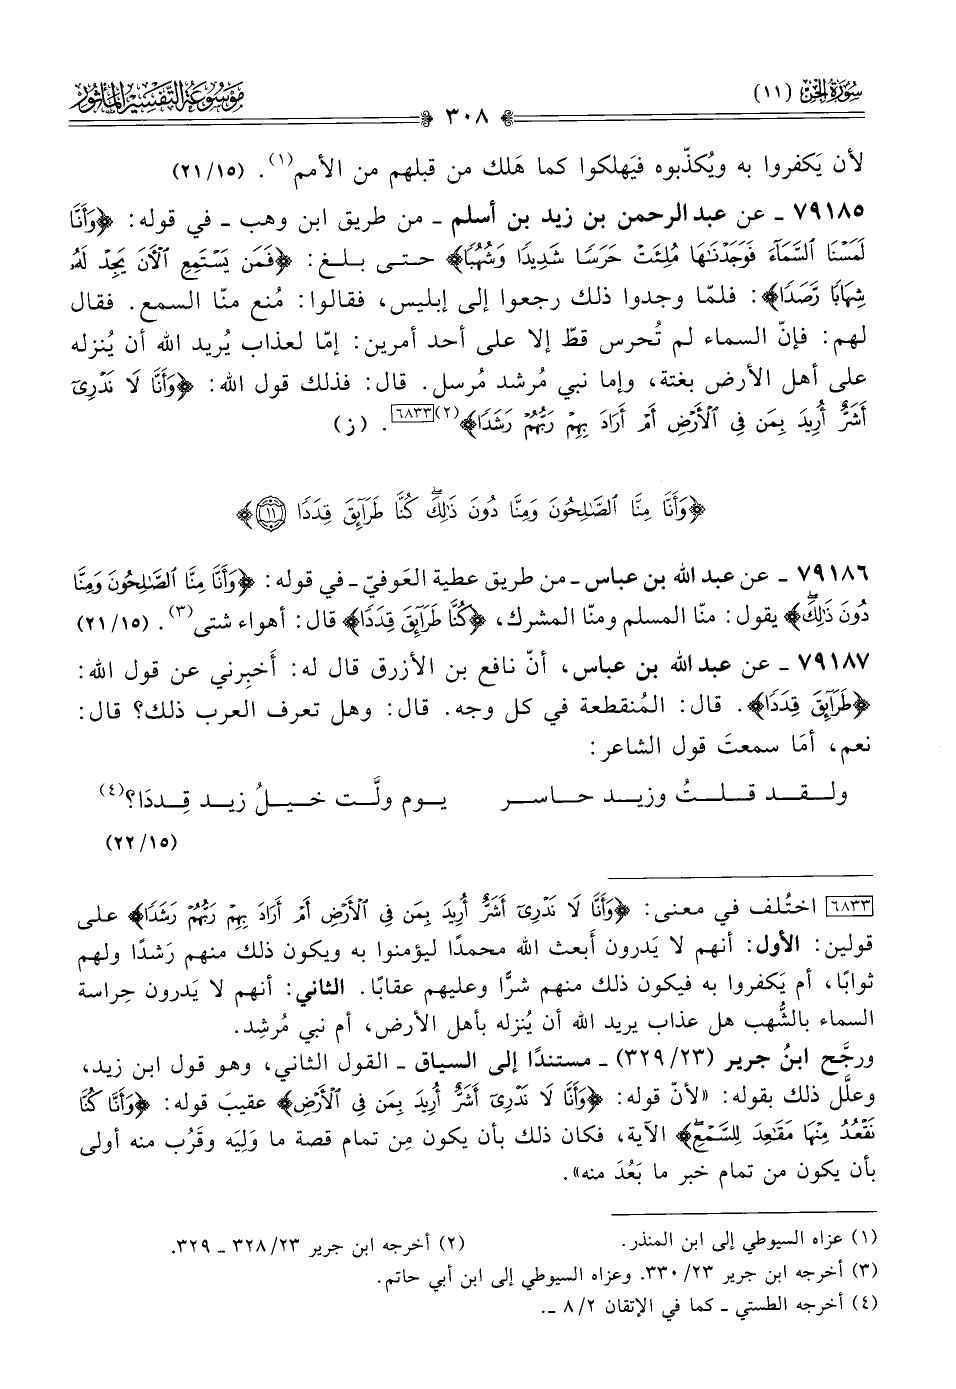 سُورَةُ الجِنّ (١١)
٣٠٨
مَوْسُوعَة التَّفْسِيْرِ المَأْثُور
لأن يَكفروا به ويُكذّبوه فيَهلكوا كما هَلك من قبلهم من الأمم(١). (٢١/١٥)
٧٩١٨٥ ـ عن عبد الرحمن بن زيد بن أسلم ـ من طريق ابن وهب ـ في قوله: ﴿وَأَنَّا
لَمَسْنَا ٱلسَّمَآءَ فَوَجَدْنَٰهَا مُلِئَتْ حَرَسًا شَدِيدًا وَشُهُبًا﴾ حتى بلغ: ﴿فَمَن يَسْتَمِعِ ٱلْـَٔانَ يَجِدْ لَهُۥ
شِهَابًا رَّصَدًا﴾: فلمّا وجدوا ذلك رجعوا إلى إبليس، فقالوا: مُنع منّا السمع. فقال
لهم: فإنّ السماء لم تُحرس قطّ إلا على أحد أمرين: إمّا لعذاب يُريد الله أن يُنزله
على أهل الأرض بغتة، وإما نبي مُرشد مُرسل. قال: فذلك قول الله: ﴿وَأَنَّا لَا نَدْرِىٓ
أَشَرٌّ أُرِيدَ بِمَن فِى ٱلْأَرْضِ أَمْ أَرَادَ بِهِمْ رَبُّهُمْ رَشَدًا﴾(٢)[٦٨٣٣]. (ز)
﴿وَأَنَّا مِنَّا ٱلصَّٰلِحُونَ وَمِنَّا دُونَ ذَٰلِكَۖ كُنَّا طَرَآئِقَ قِدَدًا ١١﴾
٧٩١٨٦ ـ عن عبد الله بن عباس ـ من طريق عطية العَوفيّ ـ في قوله: ﴿وَأَنَّا مِنَّا ٱلصَّٰلِحُونَ وَمِنَّا
دُونَ ذَٰلِكَۖ﴾ يقول: منّا المسلم ومنّا المشرك، ﴿كُنَّا طَرَآئِقَ قِدَدًا﴾ قال: أهواء شتى(٣). (٢١/١٥)
٧٩١٨٧ ـ عن عبد الله بن عباس، أنّ نافع بن الأزرق قال له: أَخبِرني عن قول الله:
﴿طَرَآئِقَ قِدَدًا﴾. قال: المُنقطعة في كل وجه. قال: وهل تعرف العرب ذلك؟ قال:
نعم، أمَا سمعتَ قول الشاعر:
ولقد قلتُ وزيد حاسر يوم ولَّت خيلُ زيد قِددَا؟(٤)
(٢٢/١٥)
[٦٨٣٣] اختُلف في معنى: ﴿وَأَنَّا لَا نَدْرِىٓ أَشَرٌّ أُرِيدَ بِمَن فِى ٱلْأَرْضِ أَمْ أَرَادَ بِهِمْ رَبُّهُمْ رَشَدًا﴾ على
قولين: الأول: أنهم لا يَدرون أَبعث الله محمدًا ليؤمنوا به ويكون ذلك منهم رَشدًا ولهم
ثوابًا، أم يَكفروا به فيكون ذلك منهم شرًّا وعليهم عقابًا. الثاني: أنهم لا يَدرون حراسة
السماء بالشُّهب هل عذاب يريد الله أن يُنزله بأهل الأرض، أم نبي مُرشِد.
ورجَّح ابنُ جرير (٣٢٩/٢٣) ـ مستندًا إلى السياق ـ القول الثاني، وهو قول ابن زيد،
وعلَّل ذلك بقوله: «لأنّ قوله: ﴿وَأَنَّا لَا نَدْرِىٓ أَشَرٌّ أُرِيدَ بِمَن فِى ٱلْأَرْضِ﴾ عقيبَ قوله: ﴿وَأَنَّا كُنَّا
نَقْعُدُ مِنْهَا مَقَٰعِدَ لِلسَّمْعِۖ﴾ الآية، فكان ذلك بأن يكون مِن تمام قصة ما وَلِيَه وقَرُب منه أولى
بأن يكون من تمام خبر ما بَعُدَ منه».
(١) عزاه السيوطي إلى ابن المنذر. (٢) أخرجه ابن جرير ٢٣/ ٣٢٨ ـ ٣٢٩.
(٣) أخرجه ابن جرير ٢٣/ ٣٣٠. وعزاه السيوطي إلى ابن أبي حاتم.
(٤) أخرجه الطستي ـ كما في الإتقان ٢/ ٨ ـ.